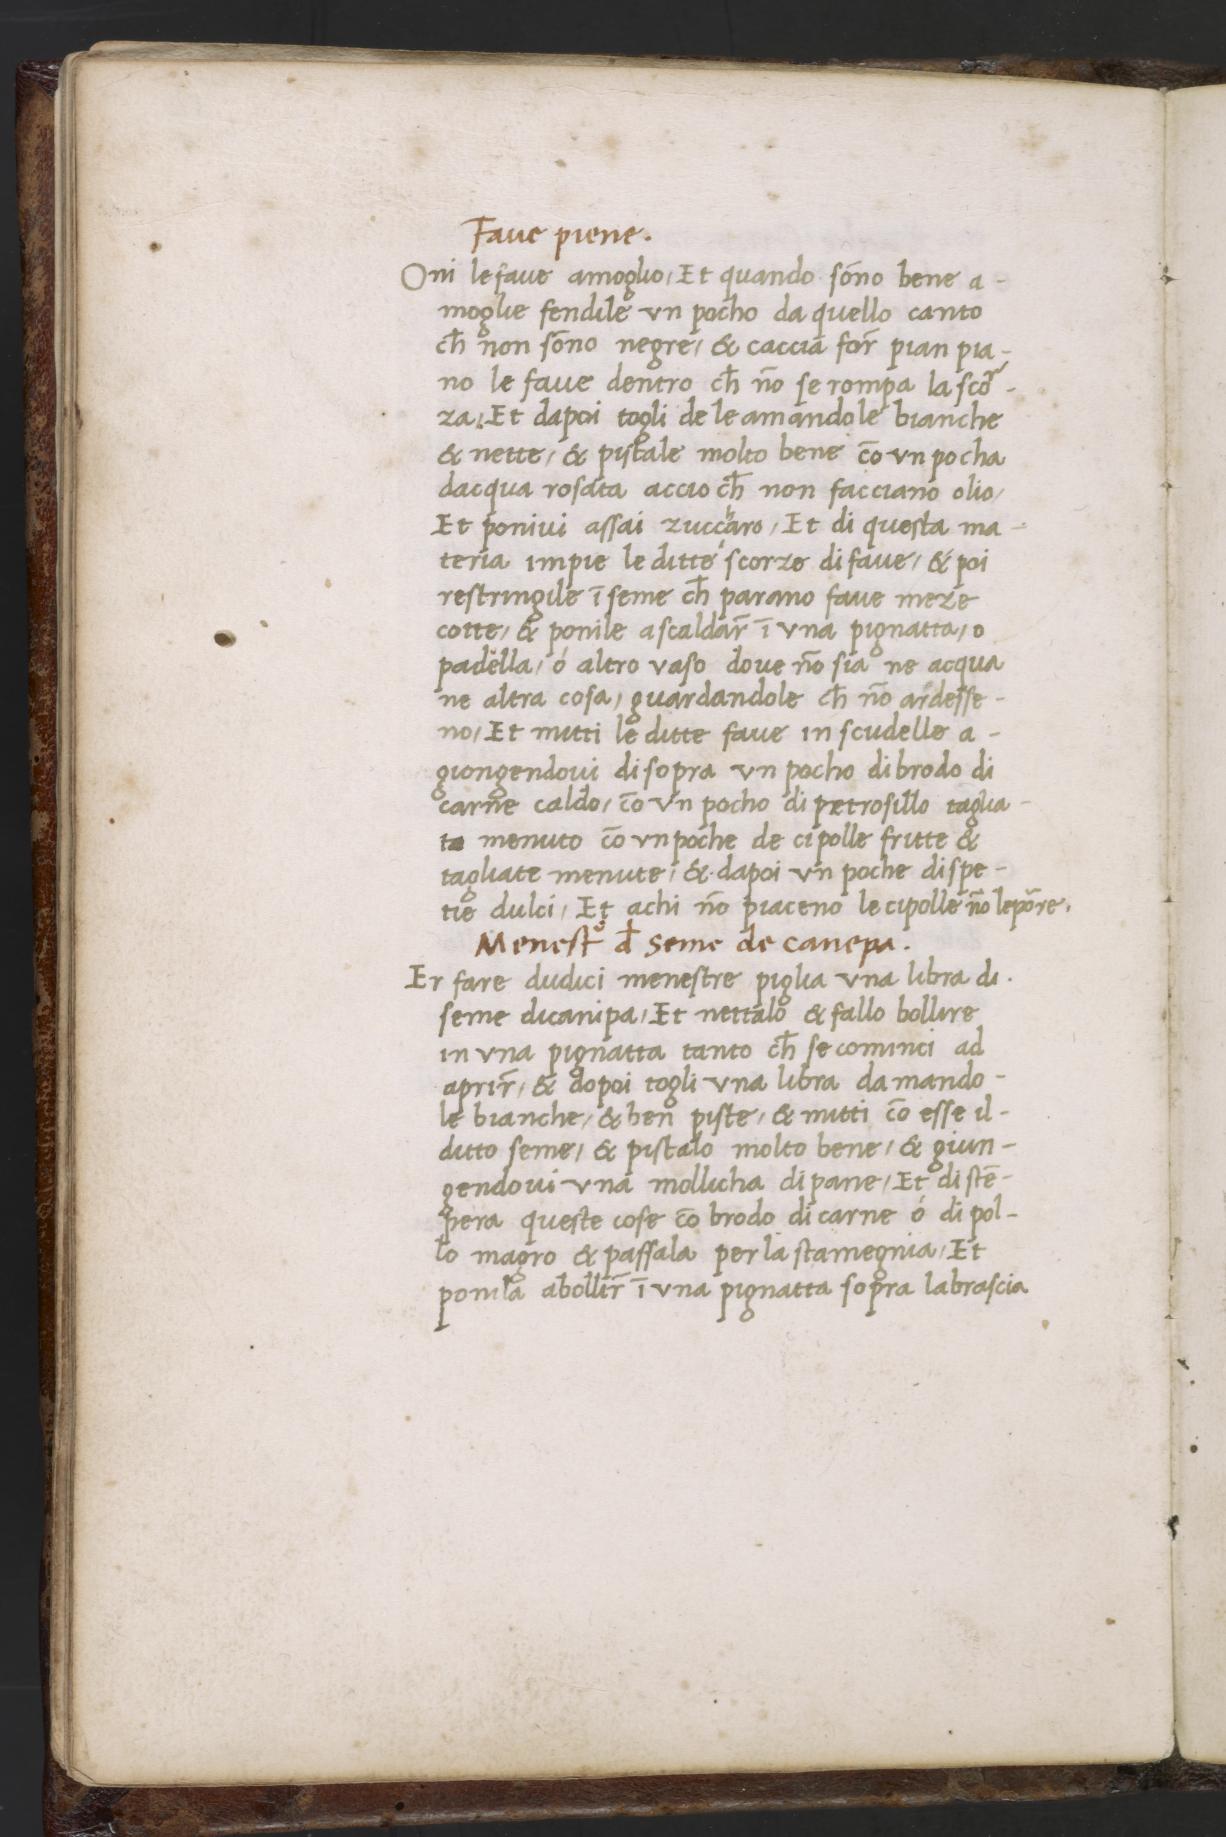 Faue piene.
Oni le faue amoglio, Et quando sōno bene a-
moglie fendile vn pocho da quello canto
ch̄ non sōno negre, & caccia for̄ pian pia-
no le faue dentro ch̄ nō se rompa la scor-
za, Et dapoi togli de le amandole bianche
& nette, & pistale molto bene cō vn pocha
dacqua rosata accio ch̄ non facciano olio,
Et ponivi assai zuccaro, Et di questa ma-
teria impie le ditte scorze di faue, & poi
restringile ī seme ch̄ parano faue meze
cotte, & ponile a scaldar̄ ī vna pignatta, o
padella, ó altro vaso doue nō sia ne acqua
ne altra cosa, guardandole ch̄ nō ardesse-
no, Et mitti le ditte faue in scudelle a-
giongendoui di sopra vn pocho di brodo di
carne caldo, cō vn pocho di petrosillo taglia-
to menuto cō vn poche de cipolle fritte &
tagliate menute, & dapoi vn poche di spe-
tie dulci, Et achi nō piaceno le cipolle nō le pōre.
Menestrº d̄ seme de canepa.
Er fare dudici menestre piglia vna libra di
seme dicanipa, Et nettalo & fallo bollire
in vna pignatta tanto ch̄ se cominci ad
aprir̄, & dopoi togli vna libra damando-
le bianche, & ben piste, & mitti cō esse il
ditto seme, & pistalo molto bene, & giun-
gendoui vna mollicha di pane, Et distē-
pera queste cose cō brodo di carne ó di pol-
lo magro & passala per la stamegnia, Et
ponila abollir̄ ī vna pignatta sopra la brascia